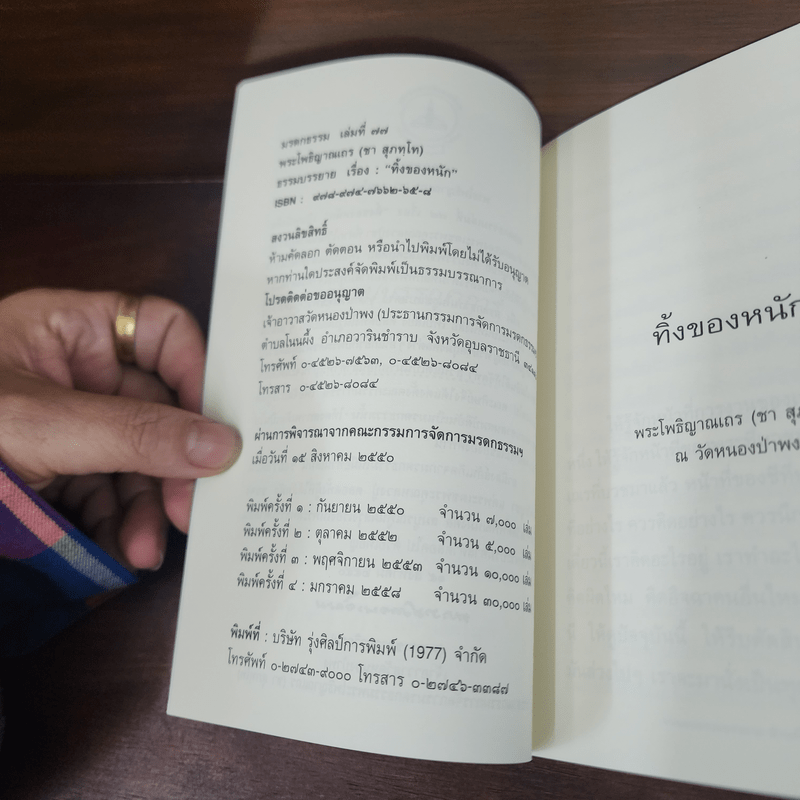 มรดกธรรม เล่มที่ ๗๗
พระโพธิญาณเถร (ชา สุภทฺโท)
ธรรมบรรยาย เรื่อง : “ทิ้งของหนัก”
ISBN : ๙๗๘-๙๗๔-๗๖๖๒-๖๕-๘
สงวนลิขสิทธิ์
ห้ามคัดลอก ตัดตอน หรือนำไปพิมพ์โดยไม่ได้รับอนุญาต
หากท่านใดประสงค์จัดพิมพ์เป็นธรรมบรรณาการ
โปรดติดต่อขออนุญาต
เจ้าอาวาสวัดหนองป่าพง (ประธานกรรมการจัดการมรดกธรรมฯ
ตำบลโนนผึ้ง อำเภอวารินชำราบ จังหวัดอุบลราชธานี
โทรศัพท์ ๐-๔๕๒๖-๗๕๖๓, ๐-๔๕๒๖-๘๐๘๔
โทรสาร ๐-๔๕๒๖-๘๐๘๔
ผ่านการพิจารณาจากคณะกรรมการจัดการมรดกธรรมฯ
เมื่อวันที่ ๑๕ สิงหาคม ๒๕๕๐
พิมพ์ครั้งที่ ๑ : กันยายน ๒๕๕๐ จำนวน ๗,๐๐๐ เล่ม
พิมพ์ครั้งที่ ๒ : ตุลาคม ๒๕๕๒ จำนวน ๕,๐๐๐ เล่ม
พิมพ์ครั้งที่ ๓ : พฤศจิกายน ๒๕๕๓ จำนวน ๑๐,๐๐๐ เล่ม
พิมพ์ครั้งที่ ๔ : มกราคม ๒๕๕๘ จำนวน ๓๐,๐๐๐ เล่ม
พิมพ์ที่ : บริษัท รุ่งศิลป์การพิมพ์ (1977) จำกัด
โทรศัพท์ ๐-๒๗๔๓-๙๐๐๐ โทรสาร ๐-๒๗๔๖-๓๓๘๗
ทิ้งของหนัก
พระโพธิญาณเถร (ชา
ณ วัดหนองป่าพง